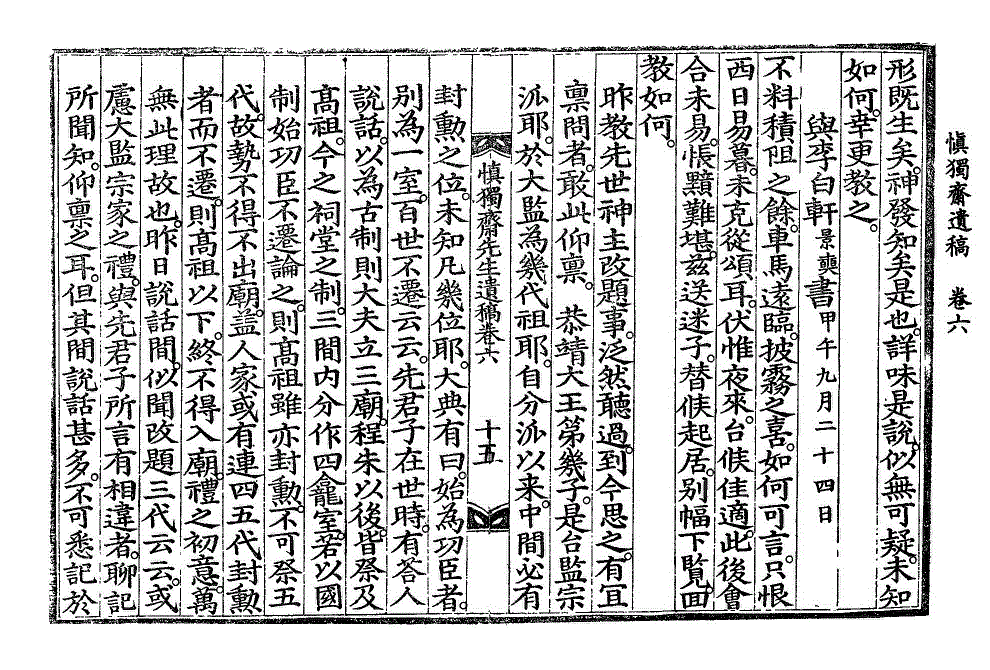 愼獨齋遺稿　卷六
形旣生矣。神發知矣是也。詳味是說。似無可疑。未知
如何。幸更敎之。
與李白軒景奭書甲午九月二十四日
不料積阻之餘。車馬遠臨。披霧之喜。如何可言。只恨
西日易暮。未克從頌耳。伏惟夜來。台候佳適。此後會
合未易。悵黯難堪。玆送迷子。替候起居。別幅下覽。面
敎如何。
昨敎先世神主改題事。泛然聽過。到今思之。有宜
稟問者。敢此仰稟。 恭靖大王第幾子。是台監宗
派耶。於大監爲幾代祖耶。自分派以來。中間必有
愼獨齋先生遺稿卷六　十五
封勳之位。未知凡幾位耶。大典有曰。始爲功臣者。
別爲一室。百世不遷云云。先君子在世時。有答人
說話。以爲古制則大夫立三廟。程朱以後。皆祭及
高祖。今之祠堂之制。三間內分作四龕室。若以國
制始功臣不遷論之。則高祖雖亦封勳。不可祭五
代。故勢不得不出廟。蓋人家或有連四五代封勳
者而不遷。則高祖以下。終不得入廟。禮之初意。萬
無此理故也。昨日說話間。似聞改題三代云云。或
慮大監宗家之禮。與先君子所言有相違者。聊記
所聞知。仰稟之耳。但其間說話甚多。不可悉記於